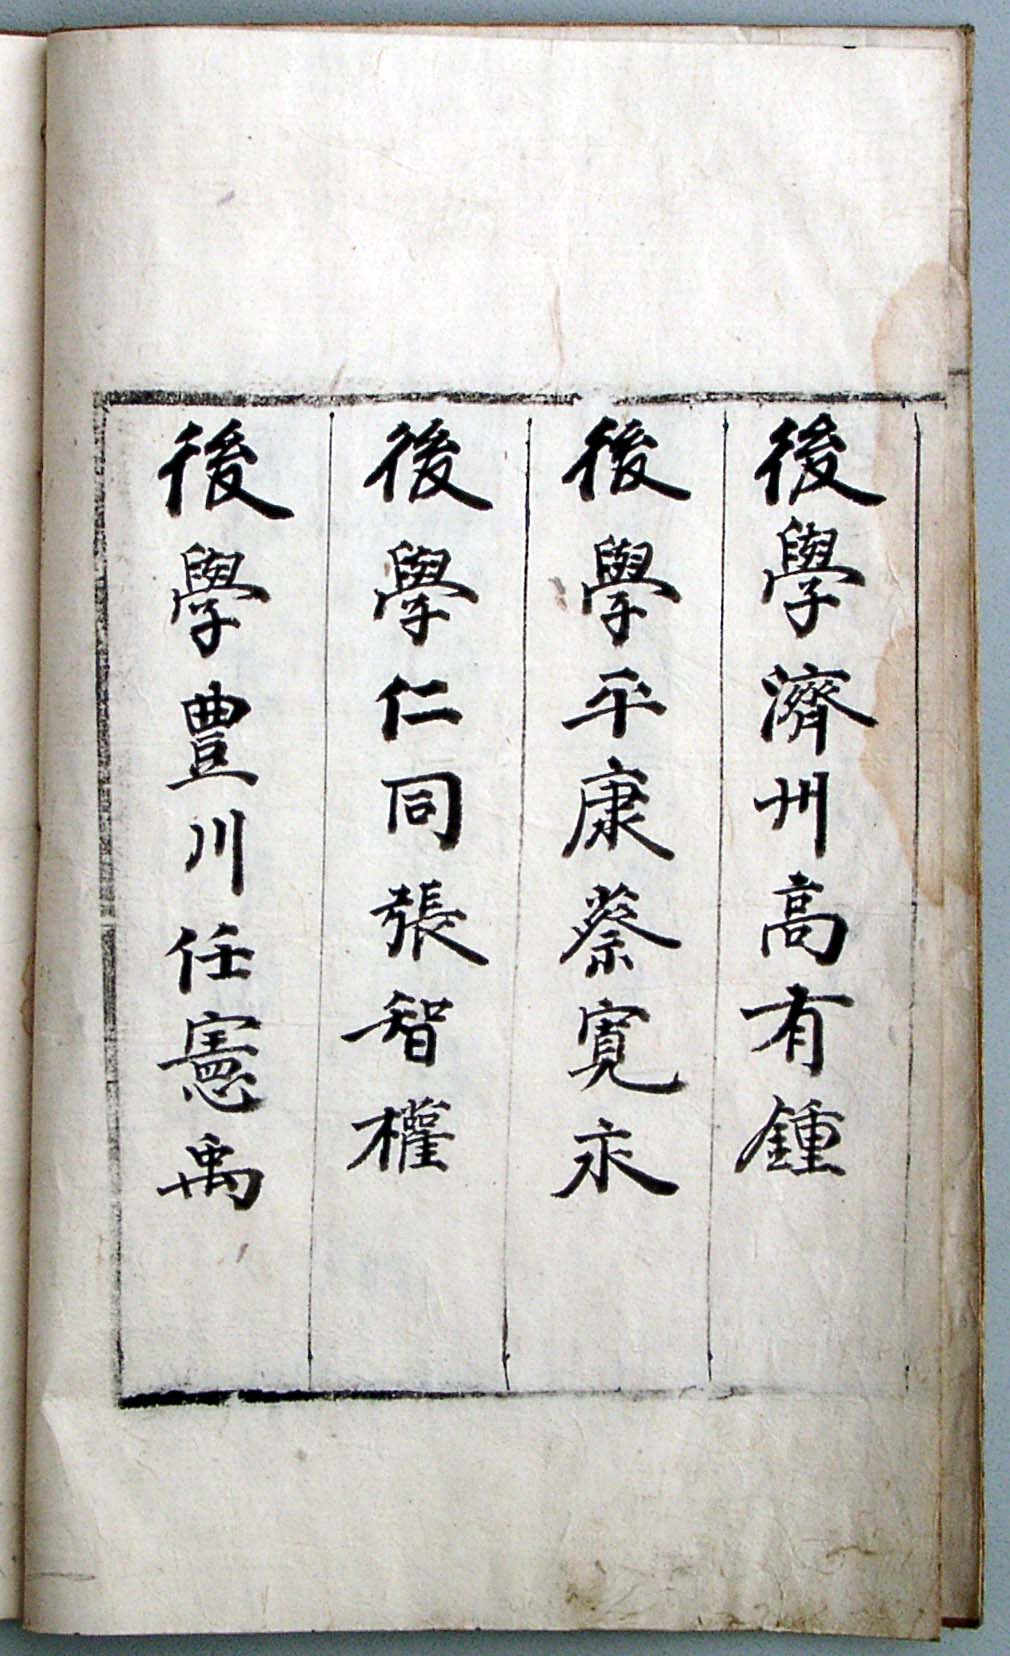 後學濟州高有鍾
後學平康蔡寬永
後學仁同張智權
後學豊川任憲禹